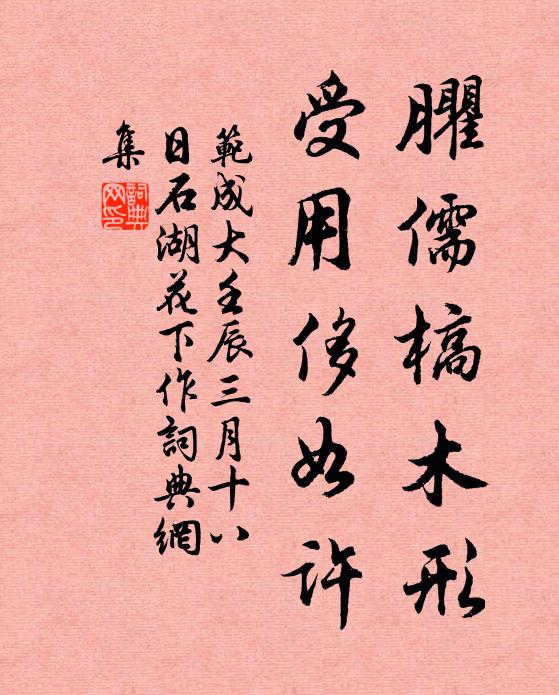 臞儒槁木形
受用侈如許
範成大壬辰三月十八
日石湖花下作詞典網
集
詞典
网印